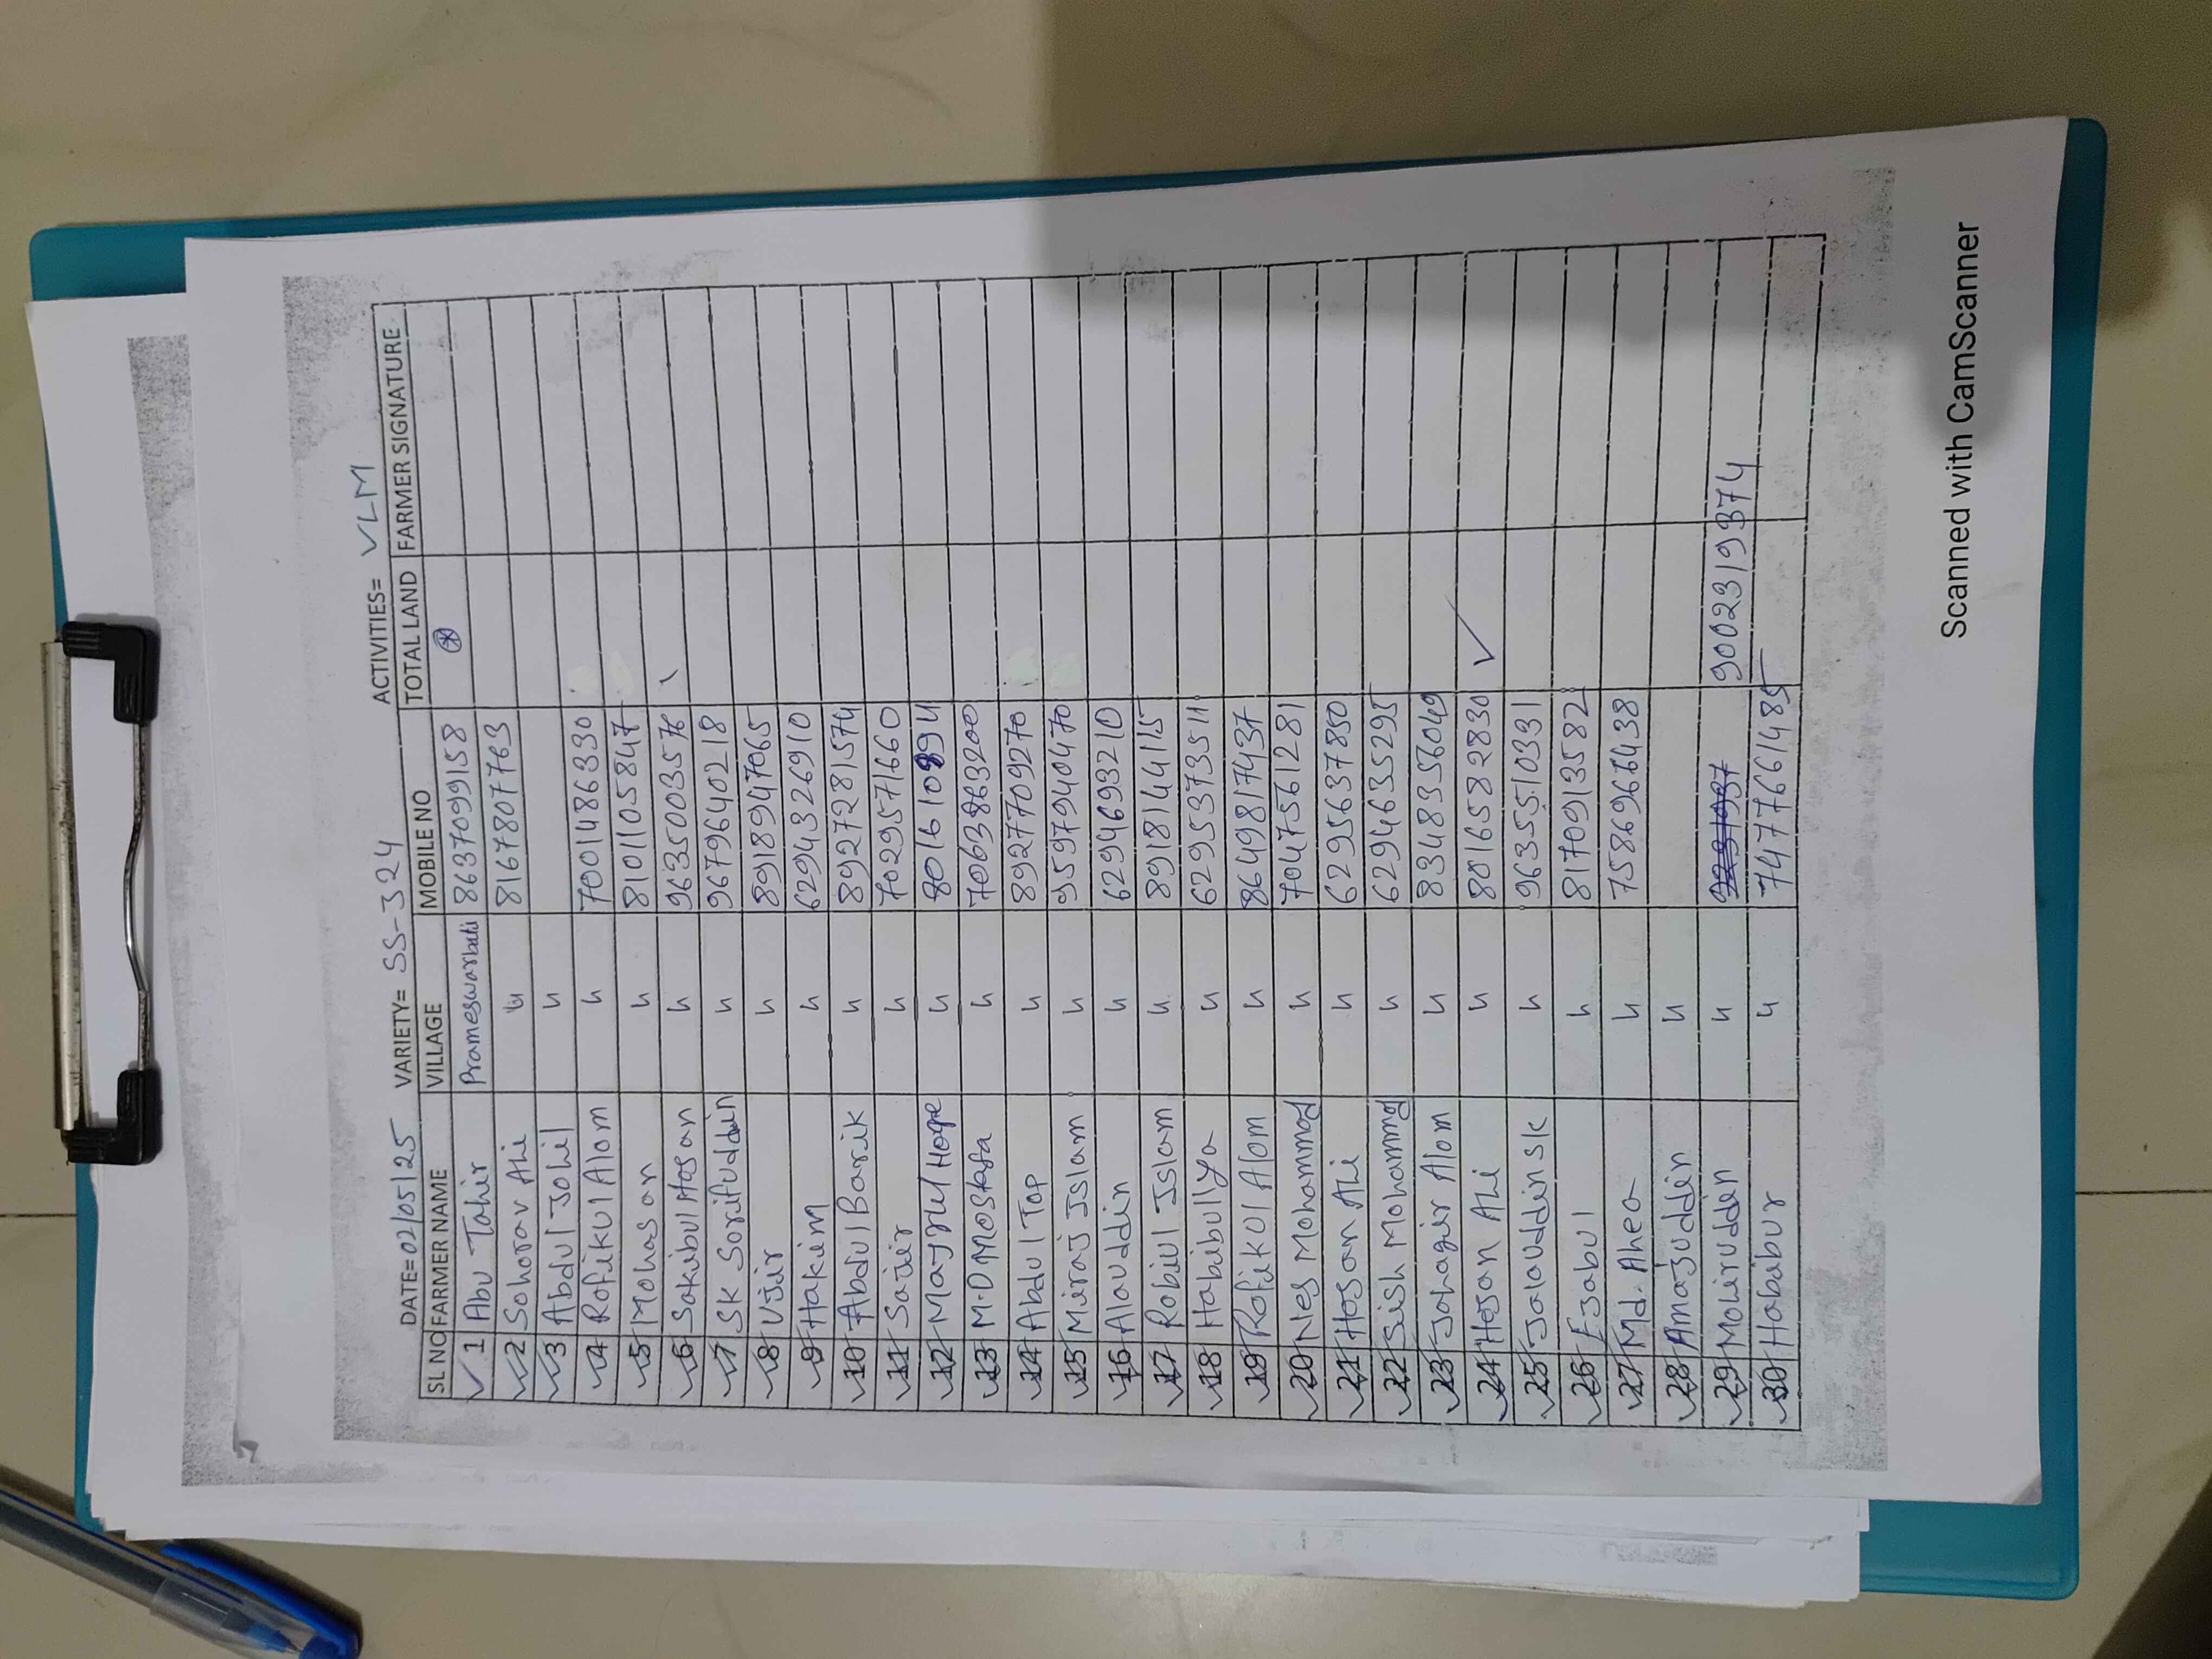 DATE= 02/05/25 VARIETY= SS-324 ACTIVITIES= VLM
SL NO FARMER NAME VILLAGE MOBILE NO TOTAL LAND FARMER SIGNATURE
1 Abu Tahir Prameswarbati 8637099158
2 Sohorav Ali 〃 8167807763
3 Abdul Johil 〃
4 Rofikul Alom 〃 7001486330
5 Mohasan 〃 8101105847
6 Sakibul Hosan 〃 9635003576
7 SK Sorifuddin 〃 9679640218
8 Ujir 〃 8918947065
9 Hakim 〃 6294326910
10 Abdul Barik 〃 8927281574
11 Sajir 〃 7029571660
12 Majrul Hoque 〃 8016108994
13 M.D Mostafa 〃 7063863200
14 Abdul Top 〃 8927709270
15 Miraj Islam 〃 9597940470
16 Alauddin 〃 6294693210
17 Robiul Islam 〃 8918144115
18 Habibullya 〃 6295373511
19 Rofikul Alom 〃 8649817437
20 Nes Mohammad 〃 7047561281
21 Hosan Ali 〃 6295637850
22 Sish Mohammad 〃 6294635295
23 Jahagir Alom 〃 8348356049
24 Hosan Ali 〃 8016582830
25 Jalauddin sk 〃 9635510331
26 Ejabul 〃 8170913582
27 Md. Ahea 〃 7586966438
28 Amajuddin 〃
29 Mohiruddin 〃 9002319374
30 Hababur 〃 7477661485
Scanned with CamScanner